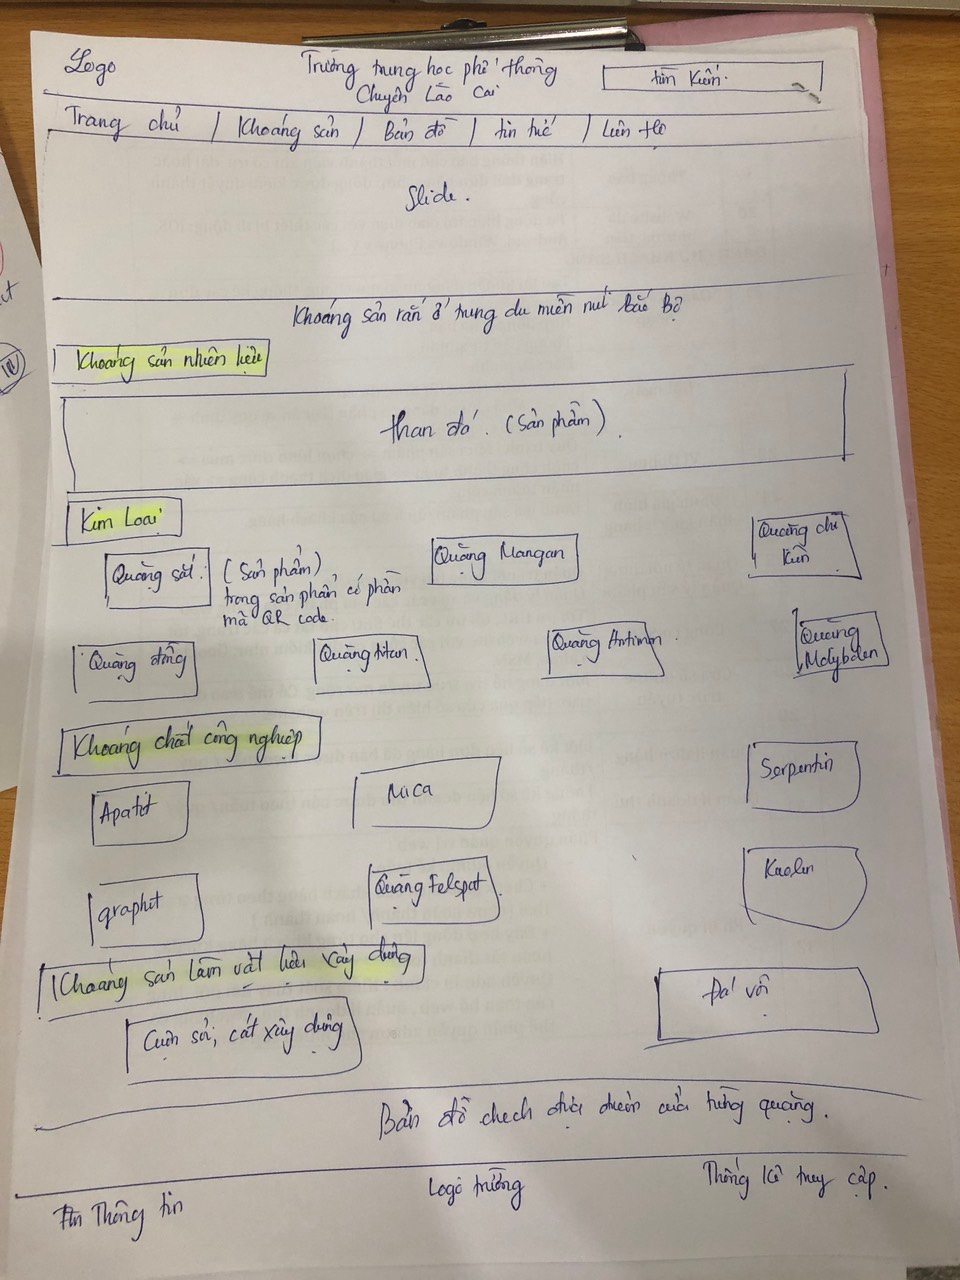 Logo
Trường trung học phổ thông
Chuyên Lào Cai
tìm kiếm.
Trang chủ / Khoáng sản / Bản đồ / tin tức / Liên hệ
Slide.
Khoáng sản rắn ở trung du miền núi bắc bộ
Khoáng sản nhiên liệu
than đá. (Sản phẩm).
Kim Loại
Quặng sắt. (Sản phẩm)
trong sản phẩm có phần
mã QR code.
Quặng Mangan
Quặng chì
kẽm
Quặng đồng
Quặng titan.
Quặng Antimon
Quặng
Molybden
Khoáng chất công nghiệp
Apatit
Mica
Serpentin
graphit
Quặng Felspat
Kaolin
Khoáng sản làm vật liệu xây dựng
Cuội sỏi, cát xây dựng
Đá vôi
Bản đồ của từng quặng.
Thông tin
Logo trường
Thống kê truy cập.